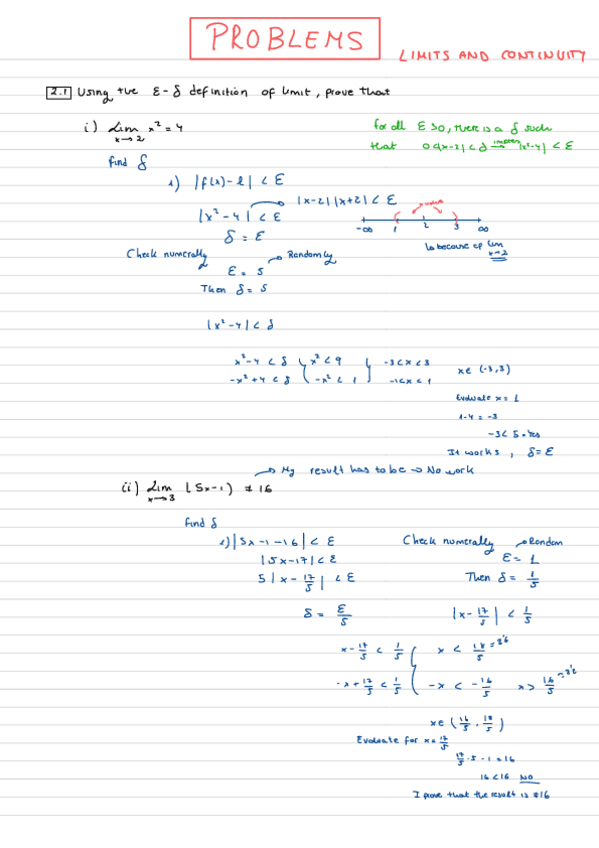 PROBLEMS
LIMITS AND CONTINUITY
2.1 Using the ε-δ definition of limit, prove that
i) lim x→2 x² = 4
for all ε>0, there is a δ such
that 0<|x-2|<δ |x²-4|<ε
find δ
1) |f(x)-l|<ε
|x-2||x+2|<ε
|x²-4|<ε
-∞ 1 2 3 ∞
δ = ε
↳ because of lim x→2
Check numerally
ε = 5 → Randomly
Then δ = 5
|x²-4|<δ
x²-4<δ x²<9 -3<x<3
x∈(-3,3)
-x²+4<δ -x²<1 -1<x<1
Evaluate x=1
1-4=-3
-3<5
It works, δ=ε
→ My result has to be → No work
ii) lim x→3 (5x-1) ≠ 16
find δ
1) |5x-1-16|<ε
Check numerally → Random
|5x-17|<ε
ε=1
5|x-17/5|<ε
Then δ=1/5
δ = ε/5
|x-17/5|<1/5
x-17/5<1/5 x<18/5=3'6
-x+17/5<1/5 -x<-16/5 x>16/5=3'2
x∈(16/5,18/5)
Evaluate for x=17/5
17/5·5-1=16
16<16 NO
I prove that the result is ≠16